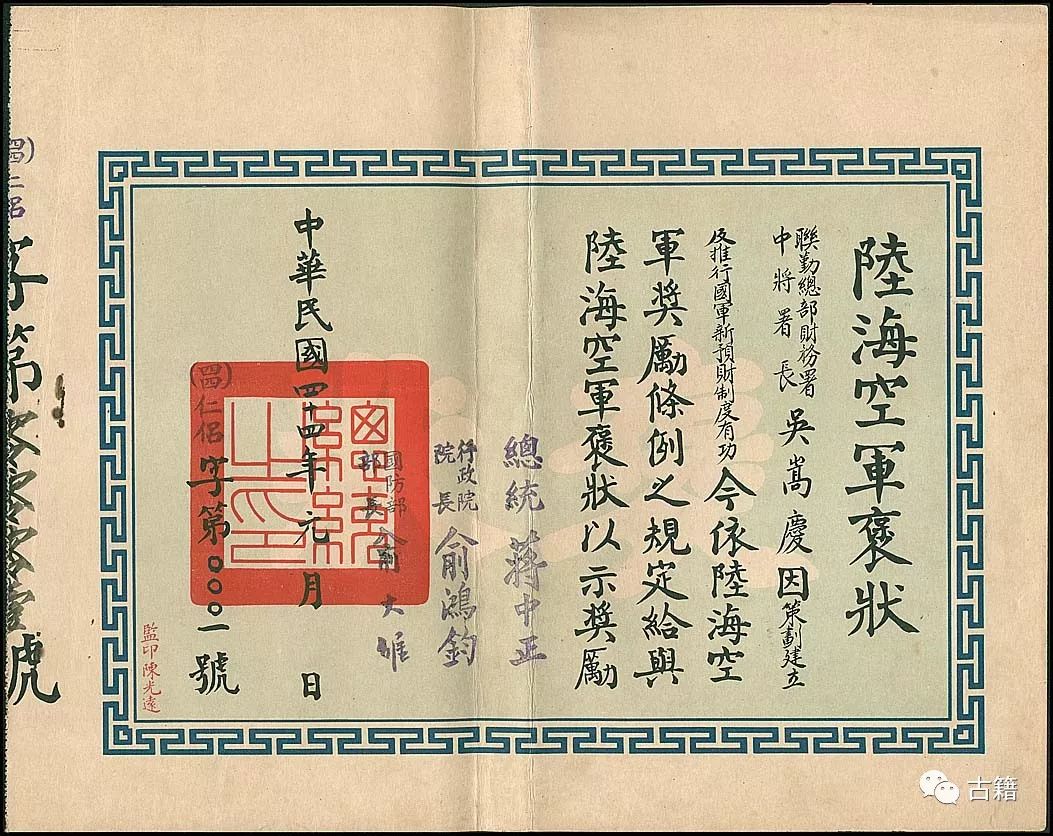 陸海空軍褒狀
聯勤總部財務署
中將署長
吳嵩慶因策劃建立
及推行國軍新預財制度有功今依陸海空
軍獎勵條例之規定給與
陸海空軍褒狀以示獎勵
總統 蔣中正
行政院
院長
俞鴻鈞
國防部
部長
俞大維
中華民國四十四年元月 日
(四)仁侶字第〇〇〇一號
監印陳光遠
(四)仁侶字第零零零壹號
古籍